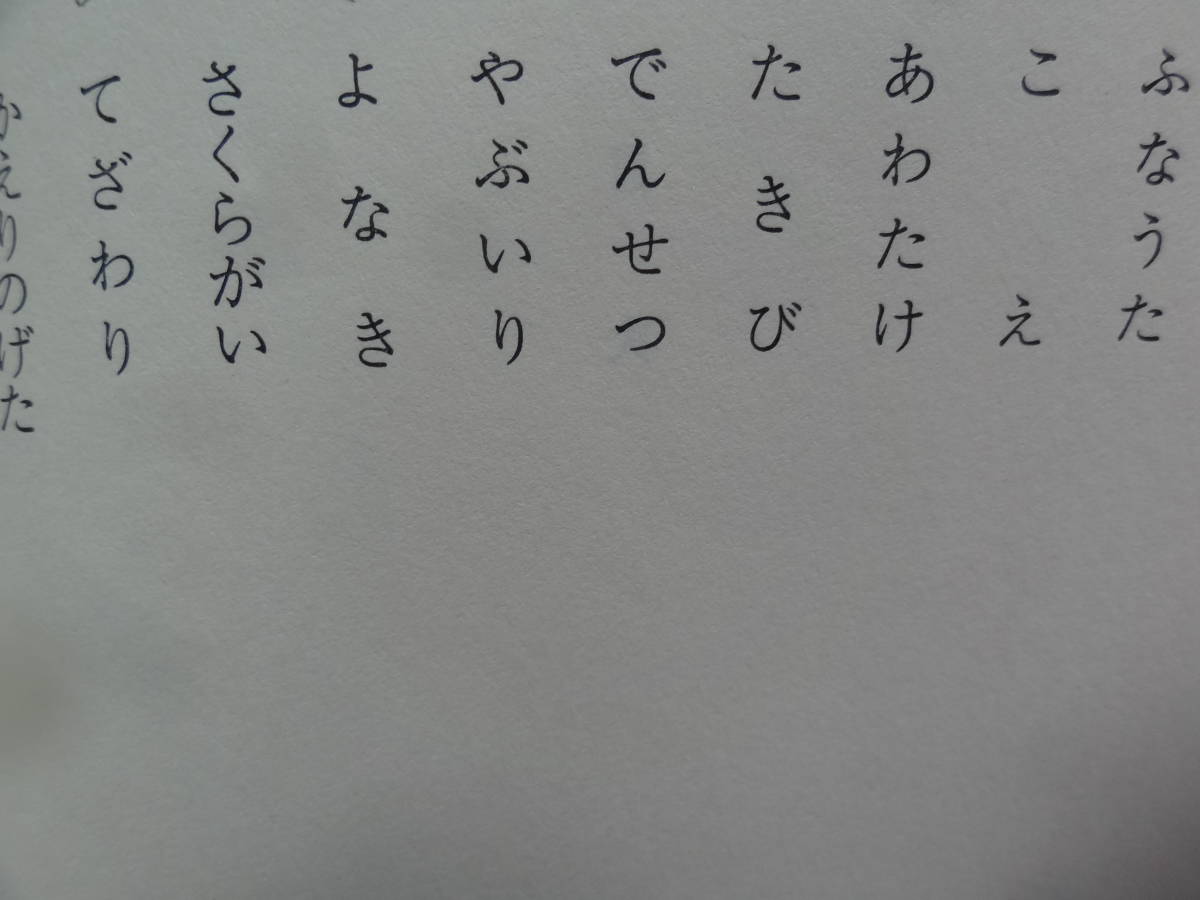 ふなうた
こえ
あわたけ
たきび
でんせつ
やぶいり
よなき
さくらがい
てざわり
かえりのげた